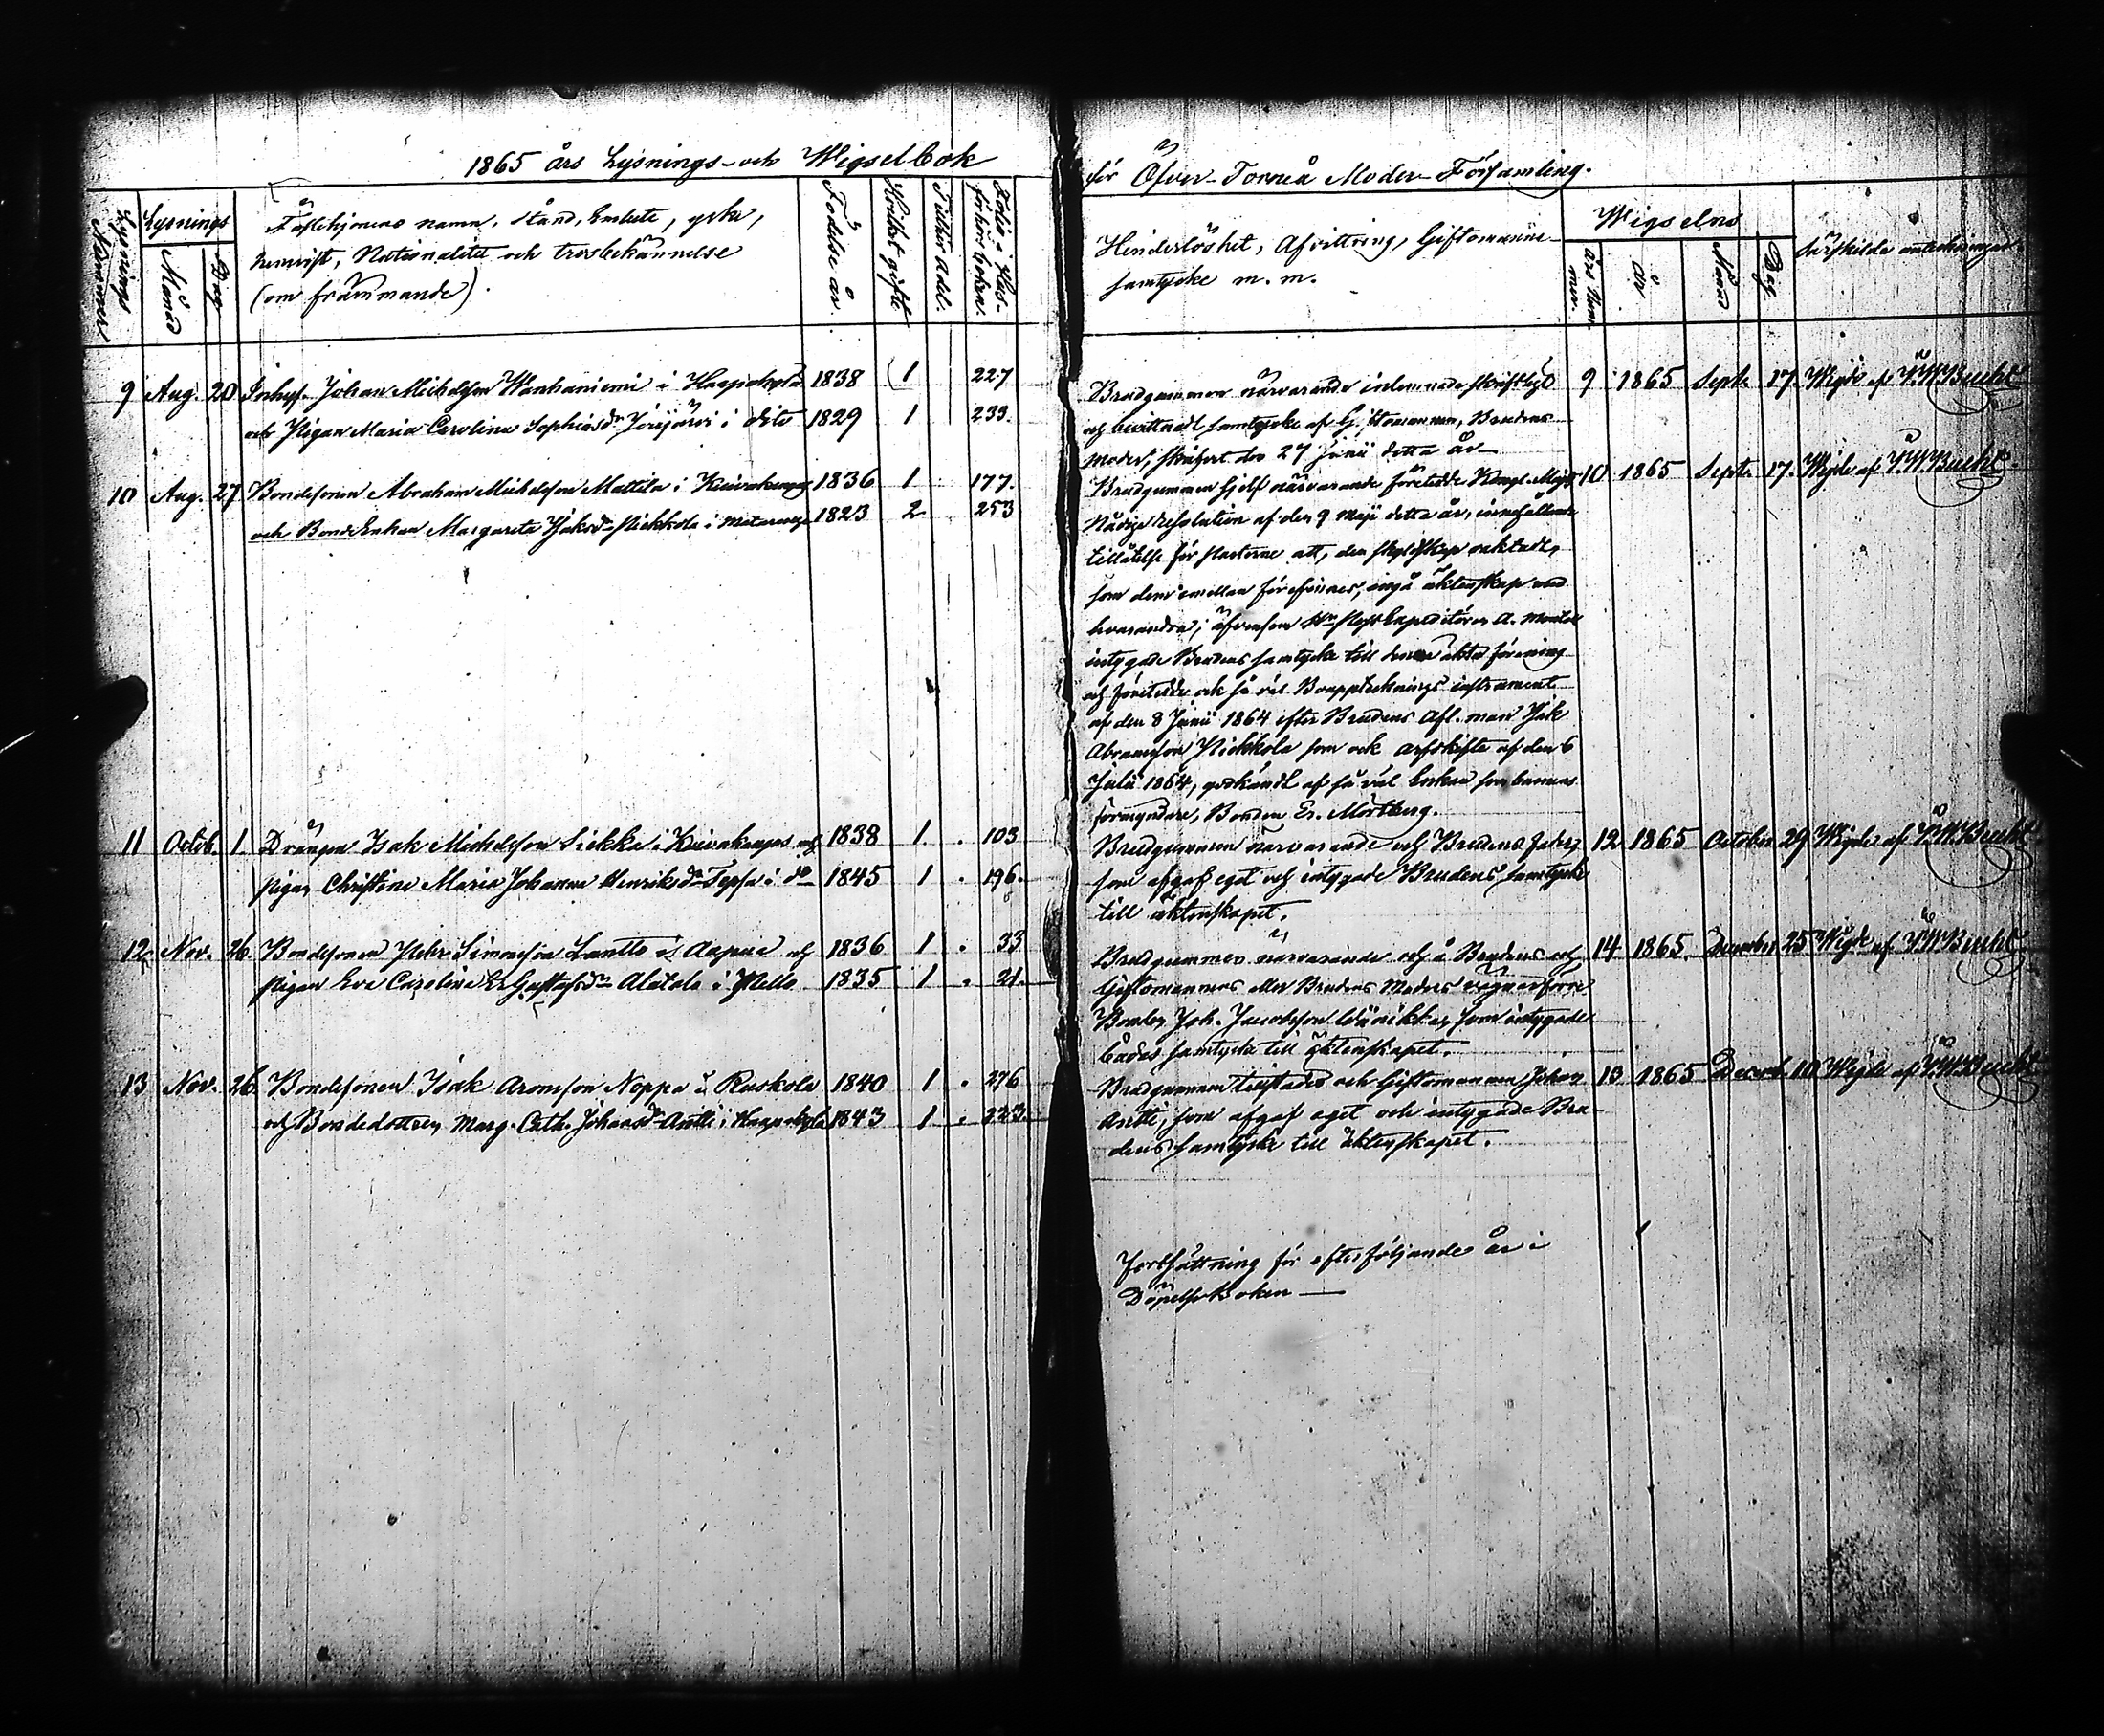 1865 års Lysnings- och Wigselbok
för Öfver-Torneå Moder-Församling.
Lysnings Nummer
Lysnings
Månad
Dag
Fästehjonens namn, stånd, Embete, yrke,
hemvist, Nationalité och trosbekännelse
(om främmande).
Födelse år.
Hvilket gifte
Folio i Hus-
förhörsboken.
Hinderlöshet, Afvittring, Giftomanna-
samtycke m. m.
Wigselns
års Num-
mer.
År
Månad
Dag.
Särskilda anteckningar
9 Aug. 20 Inhys. Johan Michelsson Wanhaniemi i Haapakylä 1838 1 227
och Pigan Maria Carolina Sophiasdr Jörijärvi i dito 1829 1 233.
Brudgummen närvarande inlemnade skriftligt
och bevittnadt samtycke af Giftomannen, Brudens
moder, skrifvet den 27 Junii detta år
9 1865 Septr. 17. Wigde af P. W. Bucht
10 Aug. 27. Bondesonen Abraham Michelsson Mattila i Kuivakangas 1836 1 177.
och BondeEnkan Margareta Isaksdr Niekkola i Matarengi 1823 2 253
Brudgummen sjelf närvarande företedde Kongl. Majts
Nådiga Resolution af den 9 Maji detta år, innehållande
tillåtelse för Parterne att, den skyldskap oaktadt,
som dem emellan förefinnes, ingå äktenskap med
hvarandra; äfvensom Hr Postexpeditören A.
intygade Brudens samtycke till denna äkta förening
och företedde ock så väl Bouppteknings instrument
af den 8 Junii 1864 efter Brudens afl. man Isak
Abramsson Niekkola som ock arfskifte af den 6
Julii 1864, godkändt af så väl Enkan som barnens
förmyndare, Bonden Er. Mörtberg.
10 1865 Septr. 17. Wigde af P. W. Bucht.
11 Octob. 1. Drängen Isak Michelsson Siekka i Kuivakangas och 1838 1. 103
pigan Christina Maria Johanna Henriksdr Tepsa i do 1845 1 196.
Brudgummen närvarande och Brudens fader,
som afgaf eget och intygade Brudens samtycke
till äktenskapet.
12 1865 October 29 Wigde af P. W. Bucht
12 Nov. 26. Bondesonen Pehr Simonsson Lantto i Aapua och 1836 1 33
pigan Eva Carolina Gustafsdr Alatalo i Pello 1835 1 21.
Brudgummen närvarande och å Brudens och
Giftomannens eller Brudens Moders vägnar förre
Bonden Joh. Jacobsson som intygade
bådas samtycke till äktenskapet.
14 1865. December 25 Wigde af P. W. Bucht
13 Nov. 26. Bondesonen Isak Aronsson Noppa i Ruskola 1840 1 276
och Bondedottren Marg. Cath. Johansdr Antti i Haapakylä 1843 1 223.
Brudgummen tillstädes och Giftomannen Johan
Antti, som afgaf eget och intygade Bru-
dens samtycke till äktenskapet.
13 1865 Decemb. 10 Wigde af P. W. Bucht
Fortsättning för efterföljande år i
DöpelseBoken —